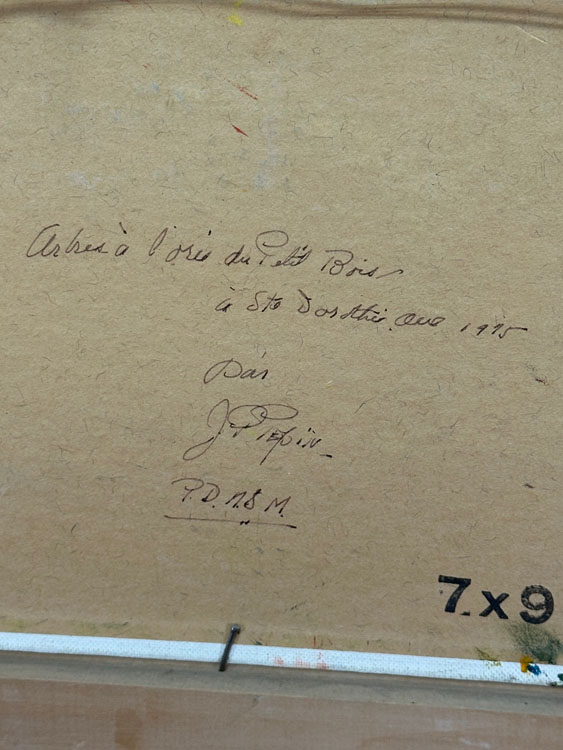 Arbres à l'orée du Petit Bois
à Ste Dorothée, Que 1975
Par
J.P. Pépin
P.D.N.S M.
7x9